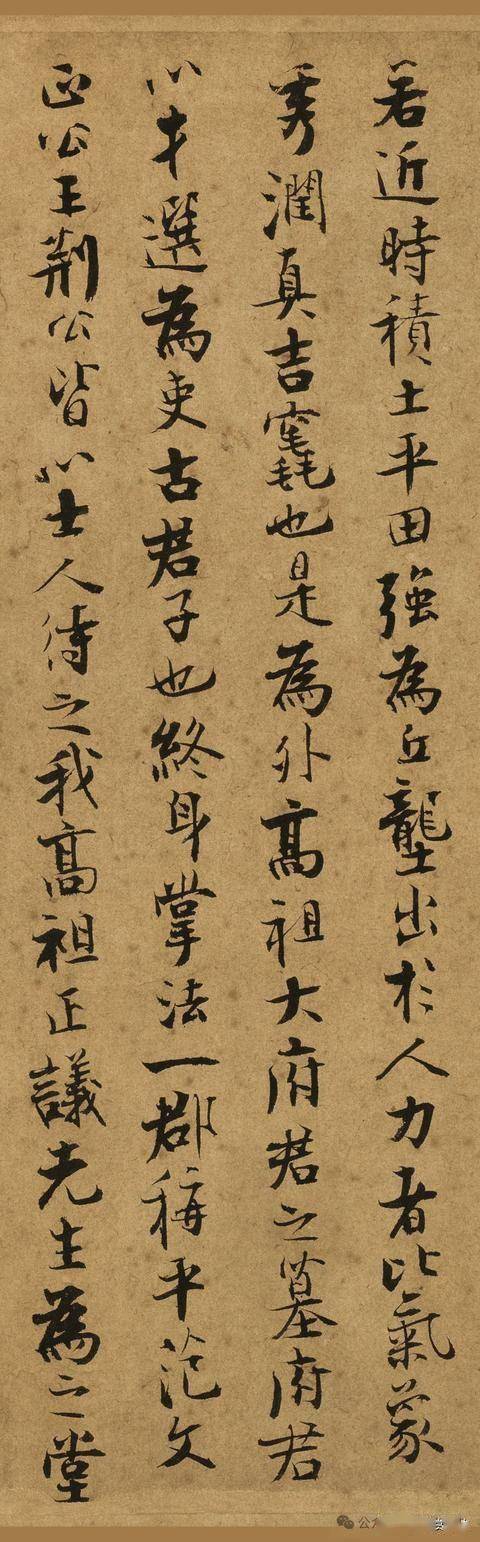 若近時積土平田強為丘壟出於人力者比氣象
秀潤真吉窀也是為外高祖大府君之墓府君
以才選為吏古君子也終身掌法一郡稱平范文
正公王荆公皆以士人待之我高祖正議先生為之堂
公